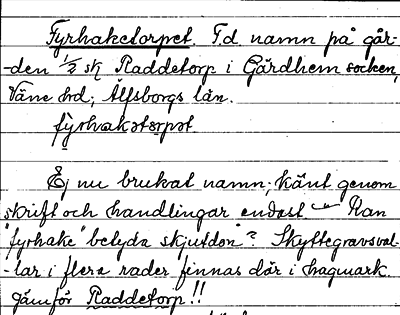 Fyrhaketorpet. F.d. namn på går-
-den 1/2 sk Raddetorp i Gärdhem socken,
Väne hrd; Älfsborgs län.
fyrhakotorpot
Ej nu brukat namn; känt genom
skrift och handlingar endast. Kan
"fyrhake" betyda skjutdon"? Skyttegravsval-
-lar i flera rader finnas där i hagmark
Jämför Raddetorp!!